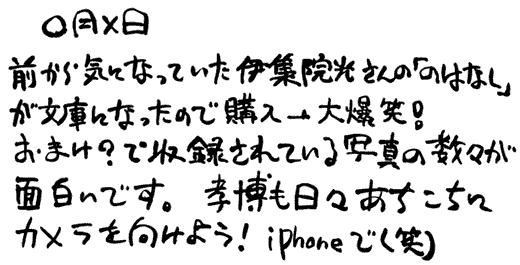 〇月×日
前から気になっていた伊集院光さんの「のはなし」
が文庫になったので購入→大爆笑!
おまけ?で収録されている写真の数々が
面白いです。孝博も日々あちこちに
カメラを向けよう! iphoneで(笑)